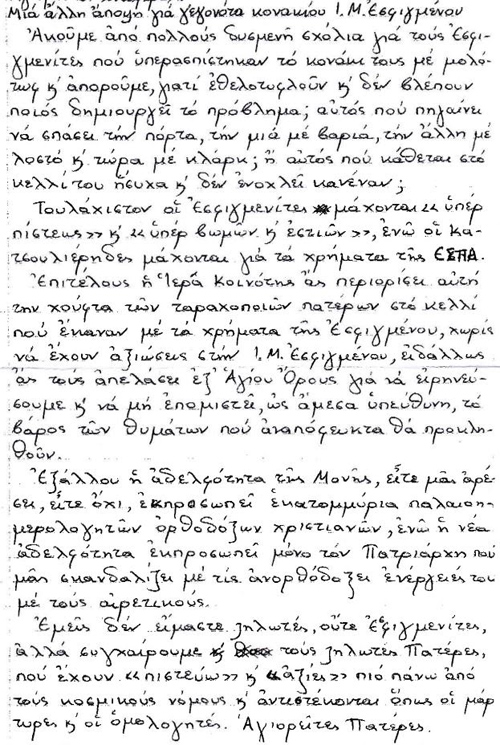 Μιά ἄλλη ἄποψη γιά γεγονότα κονακίου Ι.Μ.Ἐσφιγμένου
Ἀκοῦμε ἀπό πολλούς δυσμενῆ σχόλια γιά τούς Ἐσφι-
γμενίτες πού ὑπερασπίστηκαν τό κονάκι τους μέ μολό-
τωφ κ' ἀποροῦμε, γιατί ἐθελοτυφλοῦν κ' δέν βλέπουν
ποιός δημιουργεῖ τό πρόβλημα; αὐτός πού πηγαίνει
νά σπάσει τήν πόρτα, τήν μιά μέ βαριά, τήν ἄλλη μέ
λοστό κ' τώρα μέ κλάρκ; ἤ αὐτός πού κάθεται στό
κελλί του ἥσυχα κ' δέν ἐνοχλεῖ κανέναν;
Τουλάχιστον οἱ Ἐσφιγμενίτες μάχονται «ὑπέρ
πίστεως» κ' «ὑπέρ βωμῶν κ' ἑστιῶν», ἐνῶ οἱ Κα-
τσουλιέρηδες μάχονται γιά τά χρήματα τῆς ΕΣΠΑ.
Ἐπιτέλους ἡ Ἱερά Κοινότης ἄς περιορίσει αὐτή
τήν χούφτα τῶν ταραχοποιῶν πατέρων στό κελλί
πού ἔκαναν μέ τά χρήματα τῆς Ἐσφιγμένου, χωρίς
νά ἔχουν ἀξιώσεις στήν Ι.Μ.Ἐσφιγμένου, εἰδάλλως
ἄς τούς ἀπελάσει ἐξ' Ἁγίου Ὄρους γιά νά εἰρηνεύ-
σουμε κ' νά μή ἐπωμιστεῖ, ὡς ἄμεσα ὑπεύθυνη, τό
βάρος τῶν θυμάτων πού ἀναπόφευκτα θά προκλη-
θοῦν.
Ἐξάλλου ἡ ἀδελφότητα τῆς Μονῆς, εἴτε μᾶς ἀρέ-
σει, εἴτε ὄχι, ἐκπροσωπεῖ ἑκατομμύρια παλαιοη-
μερολογητῶν ὀρθοδόξων χριστιανῶν, ἐνῶ ἡ νέα
ἀδελφότητα ἐκπροσωπεῖ μόνο τόν Πατριάρχη πού
μᾶς σκανδαλίζει μέ τίς ἀνορθόδοξες ἐνέργειές του
μέ τούς αἱρετικούς.
Ἐμεῖς δέν εἴμαστε ζηλωτές, οὔτε Ἐσφιγμενίτες,
ἀλλά συγχαίρουμε τούς ζηλωτές Πατέρες,
πού ἔχουν «πιστεύω» κ' «ἀξίες» πιό πάνω ἀπό
τούς κοσμικούς νόμους κ' ἀντιστέκονται ὅπως οἱ μάρ
τυρες κ' οἱ ὁμολογητές. Ἁγιορεῖτες Πατέρες.